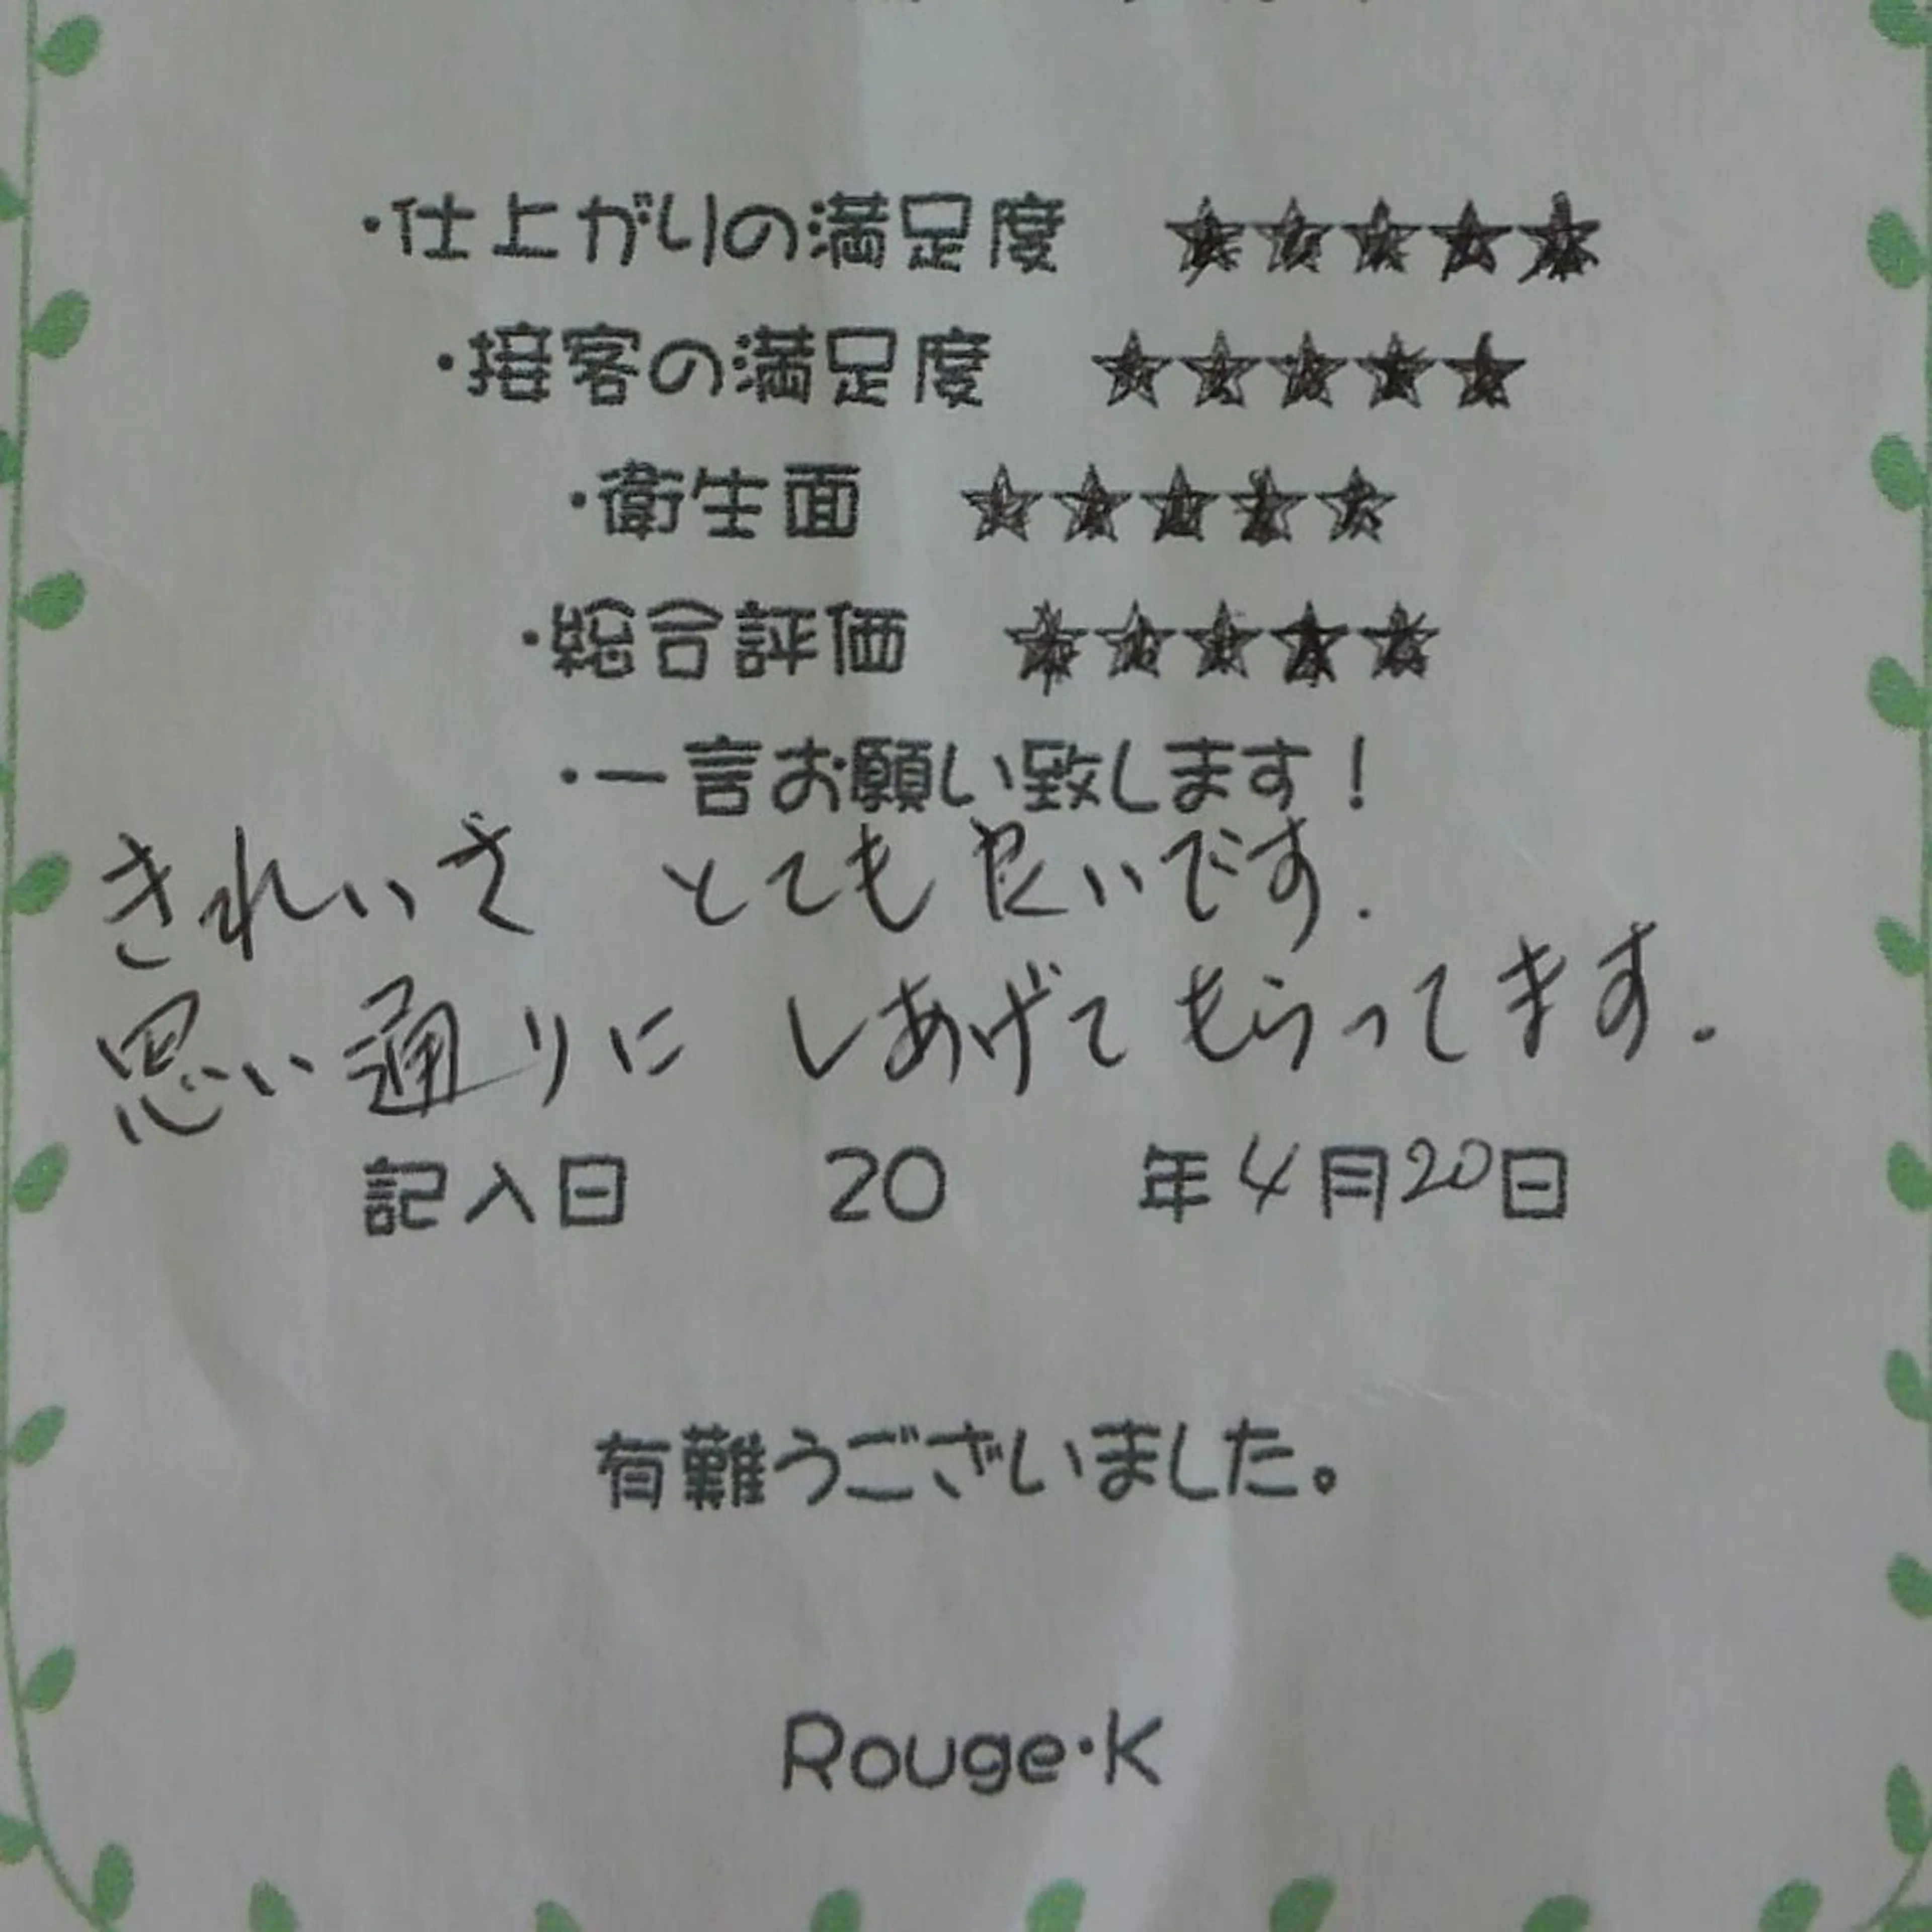 ・仕上がりの満足度 ★★★★★
・接客の満足度 ★★★★★
・衛生面 ★★★★★
・総合評価 ★★★★★
・一言お願い致します！
きれいさ とても良いです.
思い通りに しあげてもらってます.
記入日 20 年4月20日
有難うございました。
Rouge・K